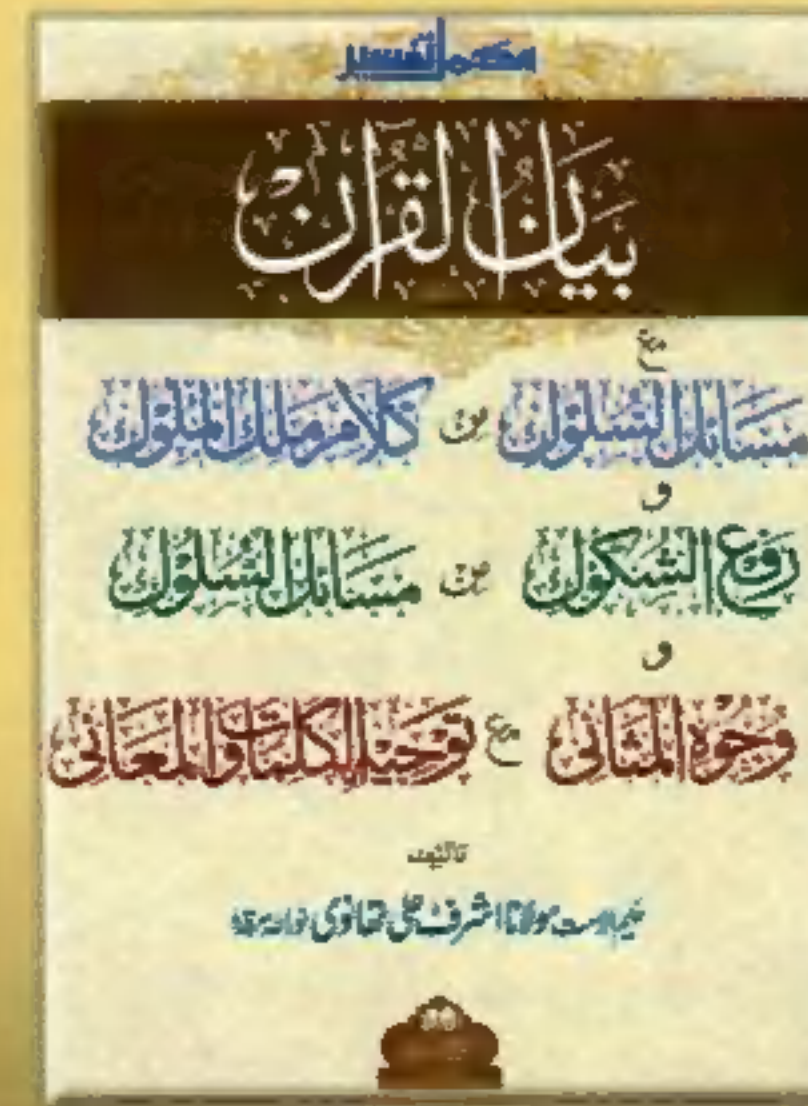 مکمل تفسیر
بَیَانُ القُرآن
مع
مسَائل السُّلوك من كلام ملك الملوك
و
رفع الشكوك من مسَائل السُّلوك
و
وجوه المثانی مع توجیه الکلمات والمعانی
تالیف
حکیم الامت مولانا اشرف علی تھانوی